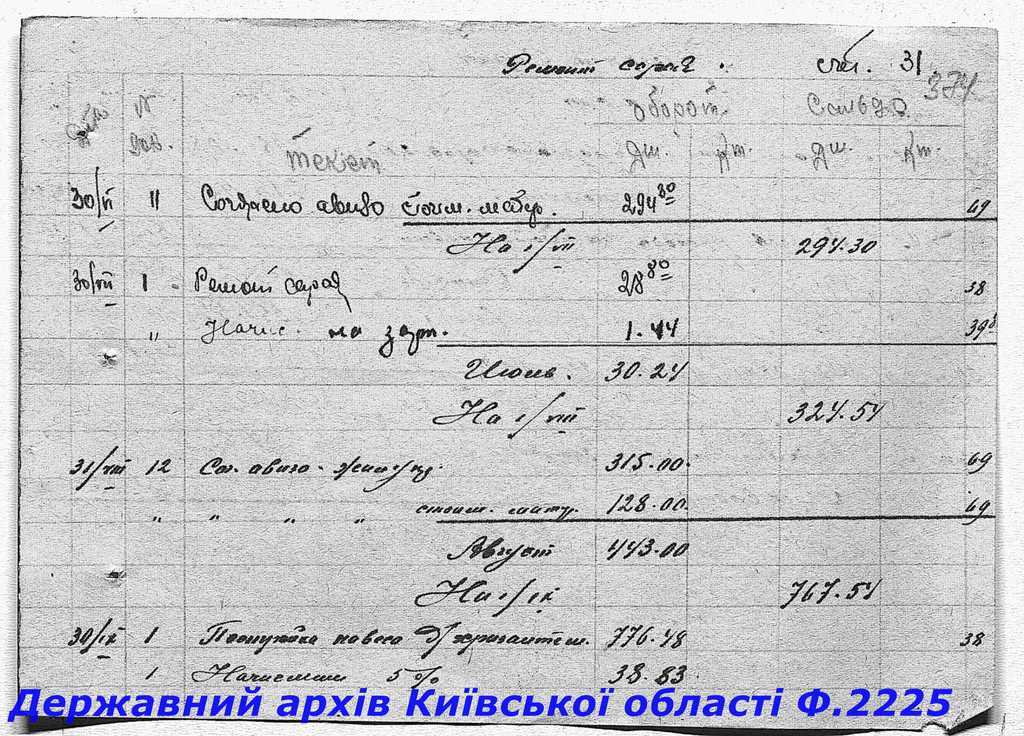 Ремонт сарая. счт. 31
374
Дата № док. Текст Оборот Сальдо
Дт. Кт. Дт. Кт.
30/VI 11 Согласно авизо стоим. матер. 294 30 69
На 1/VII 294.30
30/VII 1 Ремонт сарая 28 80 38
" Начис. на зарп. 1.44 39
Июль. 30.24
На 1/VIII 324.54
31/VIII 12 Сог. авизо 315.00 69
" " " " стоим. матер. 128.00 69
Август 443.00
На 1/IX 767.54
30/IX 1 навеса д/ 776.48 38
1 5% 38.83
Державний архів Київської області Ф.2225